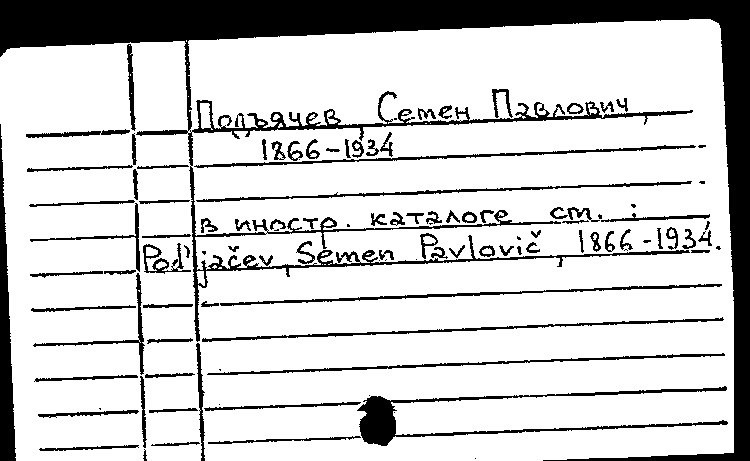 Подъячев, Семен Павлович,
1866-1934
в иностр. каталоге см. :
Pod'jačev, Semen Pavlovič, 1866-1934.